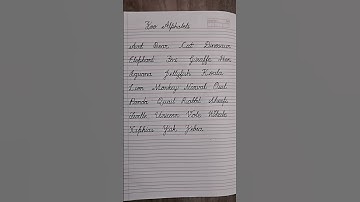 Zoo Alphabets
Ant Bear Cat Dinosaur
Elephant Fox Giraffe Hen
Iguana Jellyfish Koala
Lion Monkey Narwal Owl
Panda Quail Rabbit Sheep
Turtle Unicorn Vole Whale
Xiphias Yak Zebra